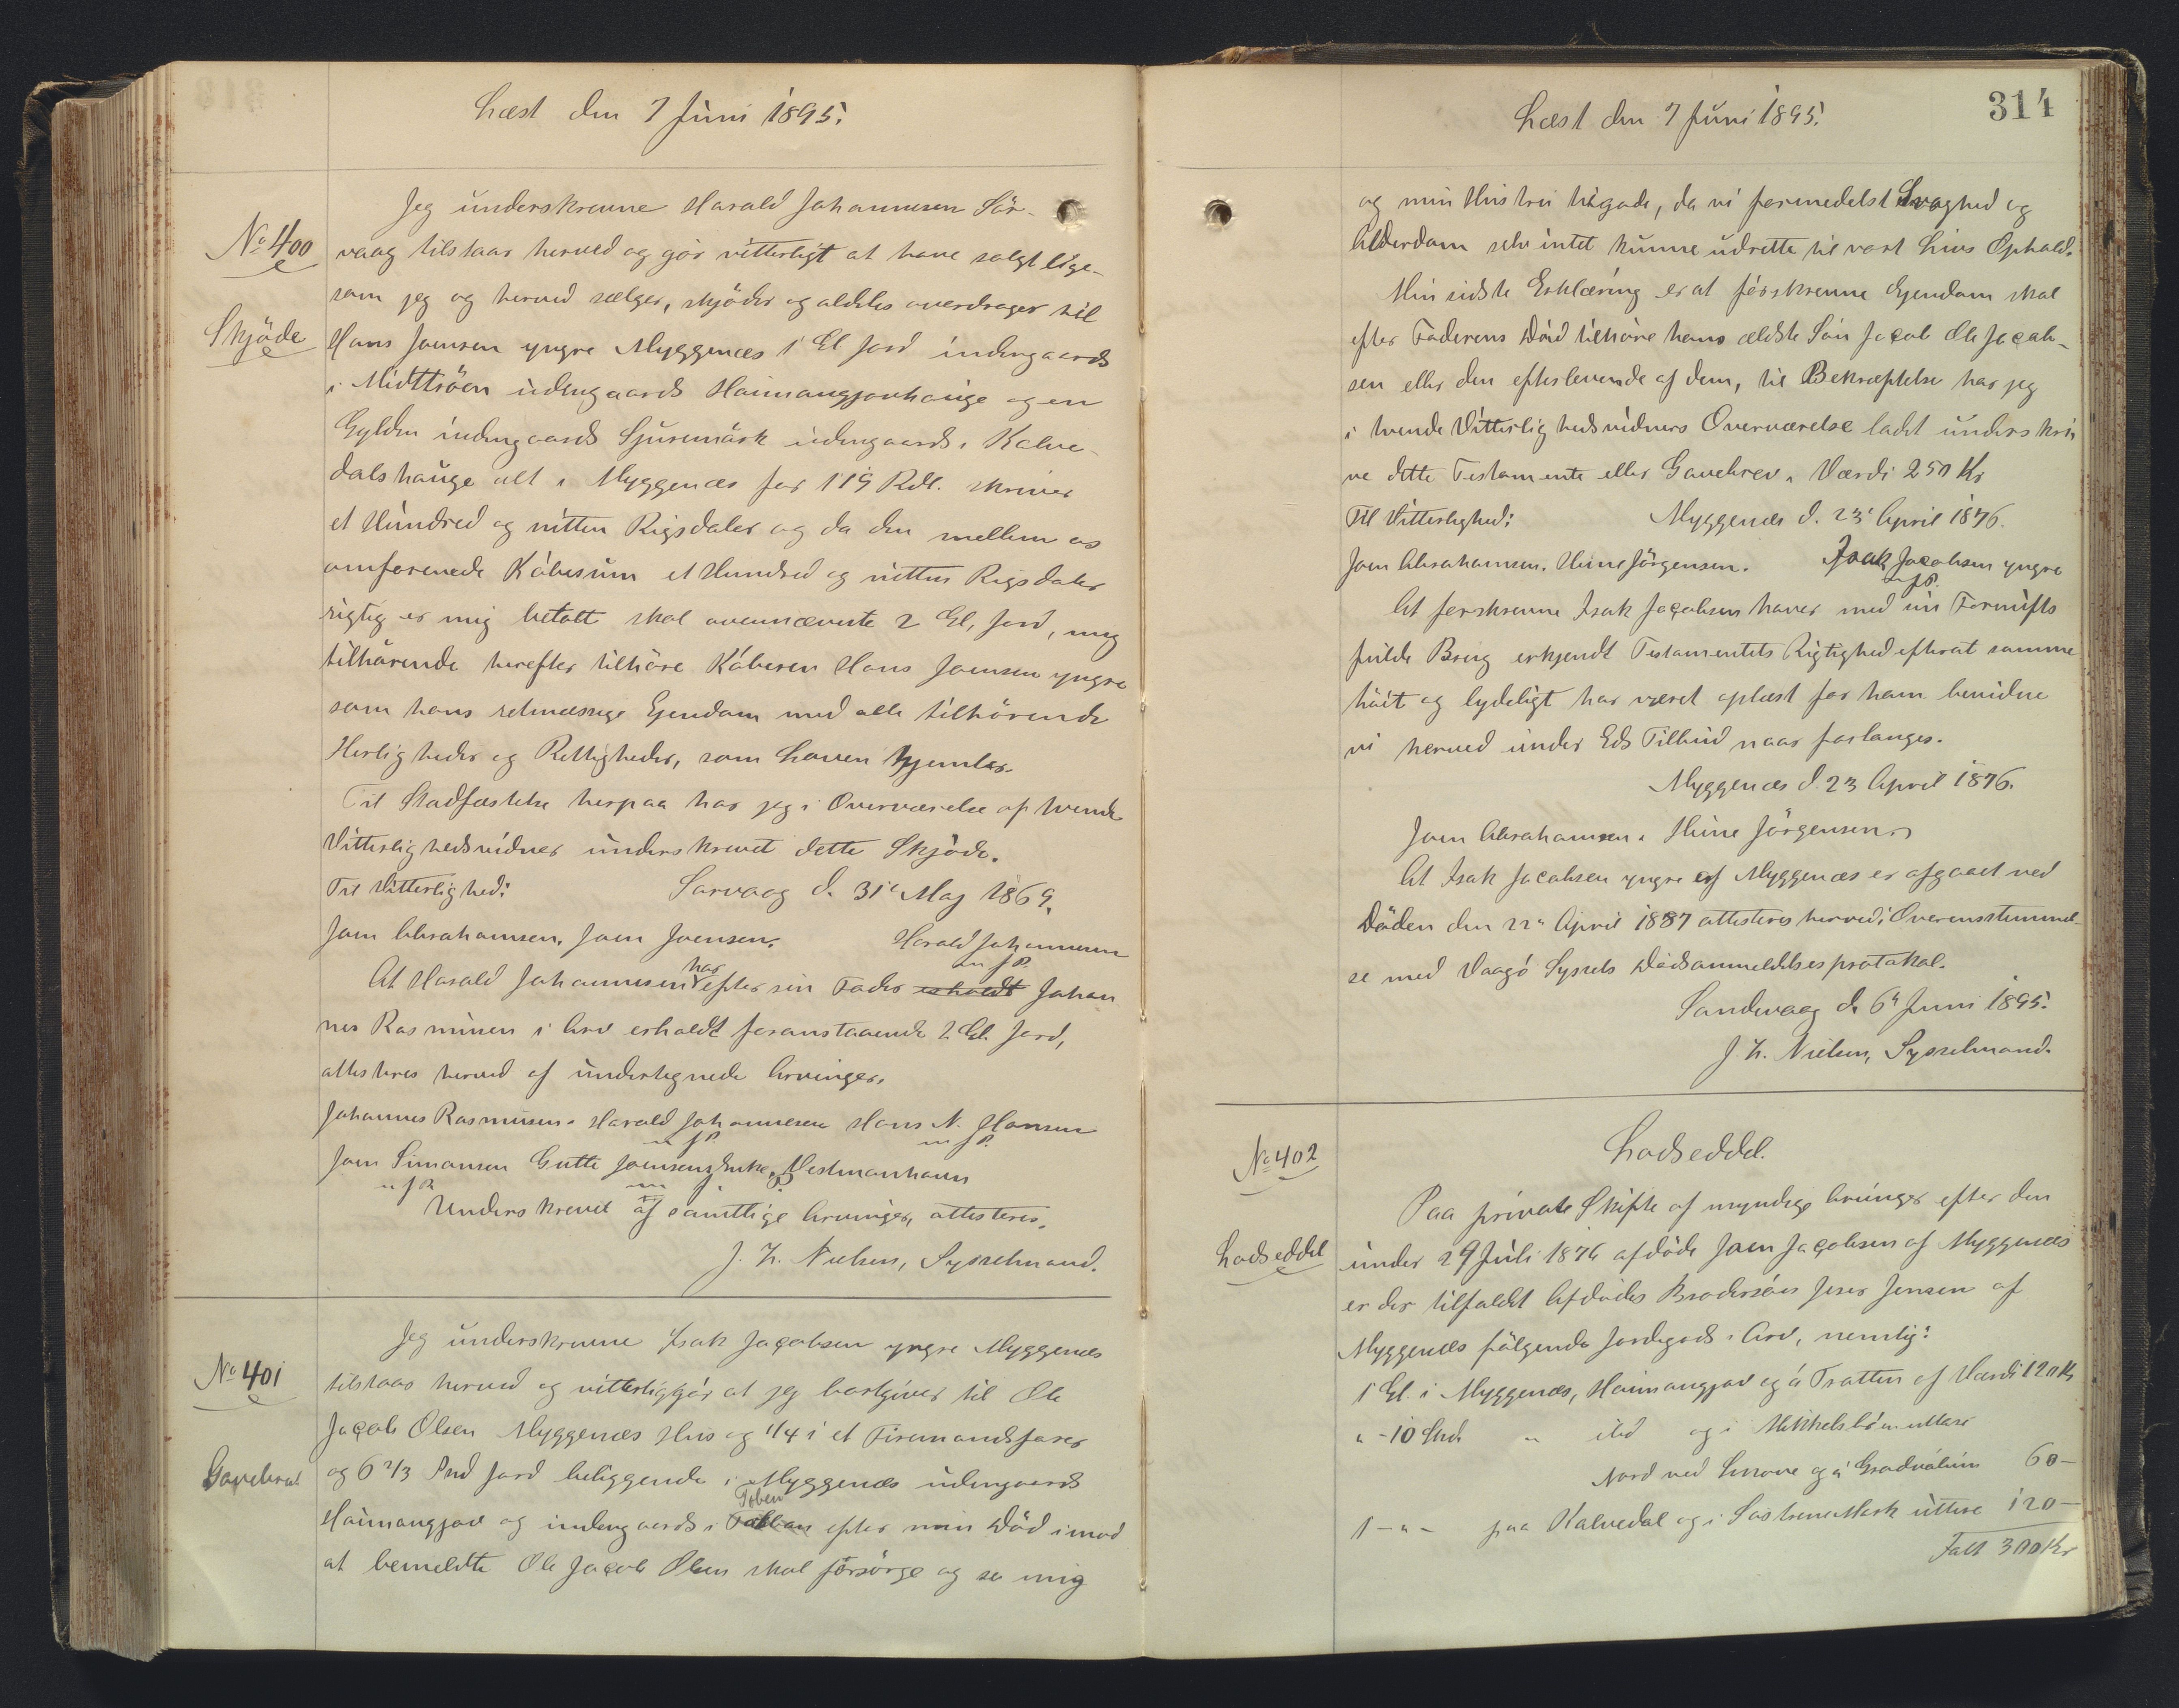 Læst den 7 Juni 1895.
No 400
Skjöde
Jeg underskrevne Harald Johannesen Sör-
vaag tilstaar herved og gör vitterligt at have solgt lige-
som jeg og herved sælger, skjöder og aldeles overdrager til
Hans Joensen yngre Myggenæs 1 Gl Jord indengaards
i Midttröen udengaards Haimangjovhauge og en
Gylden indengaards udengaards i Kalve-
dalshauge alt i Myggenæs for 119 Rdl. skriver
et Hundred og nitten Rigsdaler og da den mellem os
omforenede Köbesum et Hundred og nitten Rigsdaler
rigtig er mig betalt skal ovennævnte 2 Gl, Jord, mig
tilhörende herefter tilhöre Köberen Hans Joensen yngre
som hans retmæssige Ejendom med alle tilhörende
Herligheder og Rettigheder, som Loven hjemler.
Til Stadfæstelse herpaa har jeg i Overværelse af tvende
Vitterlighedsvidner underskrevet dette Skjöde.
Til Vitterlighed: Sörvaag d. 31te Maj 1869.
Joen Abrahamsen. Joen Joensen. Harald Johannesen
m f P.
At Harald Johannesen har efter sin Fader erholdt Johan
nes Rasmusen i Arv erholdt foranstaaende 2 Gl. Jord,
attesteres herved af undertegnede Arvinger.
Johannes Rasmusen. Harald Johannesen Hans N. Hansen
m f P m f P.
Joen Simonsen Gutte Joensens Enke, Vestmanhavn
m f P m f P
Underskrevet af samtlige Arvinger, attesteres.
J. H. Nielsen, Sysselmand.
No 401
Gavebrev
Jeg underskrevne Isak Jacobsen yngre Myggenæs
tilstaar herved og vitterliggör at jeg bortgiver til Ole
Jacob Olsen Myggenæs Hus og 1/4 i et Firemandsfarer
og 6 2/3 Snd Jord beliggende i Myggenæs udengaards
Haimangjov og indengaards i Toben efter min Död imod
at bemeldte Ole Jacob Olsen skal forsörge og se mig
314
Læst den 7 Juni 1895.
og min Hustru tilgode, da vi formedelst Svaghed og
Alderdom selv intet kunne udrette til vort Livs Ophold.
Min sidste Erklæring er at förskrevne Ejendom skal
efter Faderens Död tilhöre hans ældste Sön Jacob Ole Jacob-
sen eller den efterlevende af dem, til Bekræftelse har jeg
i tvende Vitterlighedsvidners Overværelse ladet underskri
ve dette Testamente eller Gavebrev. Værdi 250 Kr
Til Vitterlighed: Myggenæs d. 23' April 1876.
Joen Abrahamsen. Heine Jörgensen. Isak Jacobsen yngre
m f P.
At forskrevne Isak Jacobsen haver med sin Fornufts
fulde Brug erkjendt Testamentets Rigtighed efterat samme
höit og lydeligt har været oplæst for ham bevidne
vi herved under Eds Tilbud naar forlanges.
Myggenæs d. 23 April 1876.
Joen Abrahamsen. Heine Jörgensen.
At Isak Jacobsen yngre af Myggenæs er afgaaet ved
Döden den 22' April 1887 attesteres herved i Overensstemmel-
se med Vaagö Syssels Dödsanmeldelsesprotokol.
Sandevaag d. 6te Juni 1895.
J. H. Nielsen, Sysselmand.
No 402
Lodseddel
Lodseddel.
Paa private Skifte af myndige Arvinger efter den
under 29 Juli 1876 afdöde Joen Jacobsen af Myggenæs
er der tilfaldet Afdödes Brodersön Jens Jensen af
Myggenæs fölgende Jordegods i Arv, nemlig:
1 Gl. i Myggenæs, Haimangjov og á Tratten af Værdi 120 Kr
" - 10 Snd. " ibd og i
Nord ved og á 60 -
1 - " - paa Kalvedal og i uttere 120 -
Ialt 300 Kr